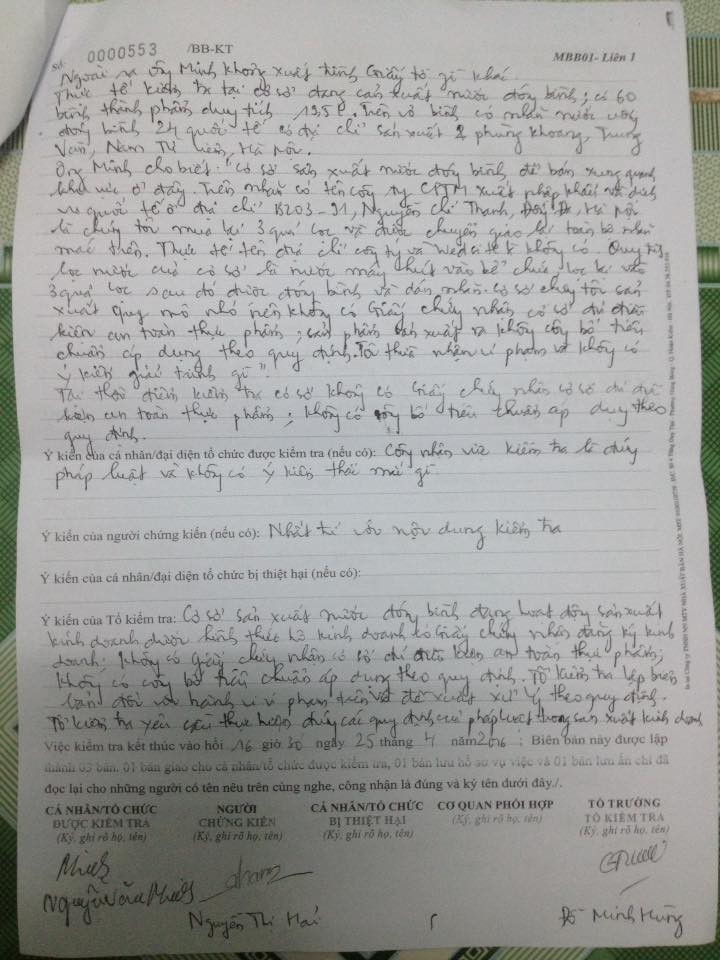 Số: 0000553 /BB-KT
MBB01- Liên 1
Ngoài ra ông Minh không xuất trình Giấy tờ gì khác
Thực tế kiểm tra tại cơ sở đang sản xuất nước đóng bình; có 60
bình thành phẩm dung tích 19,5 l. Trên vỏ bình có nhãn nước uống
đóng bình 24 quốc tế có địa chỉ sản xuất 2 phùng khoang, Trung
Văn, Nam Từ Liêm, Hà Nội.
Ông Minh cho biết: "Cơ sở sản xuất nước đóng bình để bán xung quanh
khu vực ở đây. Trên nhãn có tên công ty CPTM xuất nhập khẩu và dịch
vụ quốc tế ở địa chỉ B203-91, Nguyễn Chí Thanh, Đống Đa, Hà Nội
là chúng tôi mua lại 3 quả lọc và được chuyển giao lại toàn bộ nhãn
mác trên. Thực tế tên địa chỉ công ty và Website không có. Quy trình
lọc nước của cơ sở là nước máy hút vào bể chứa, lọc vào
3 quả lọc sau đó được đóng bình và dán nhãn. Cơ sở chúng tôi sản
xuất quy mô nhỏ nên không có Giấy chứng nhận cơ sở đủ điều
kiện an toàn thực phẩm; sản phẩm sản xuất ra không công bố tiêu
chuẩn áp dụng theo quy định. Tôi thừa nhận vi phạm và không có
ý kiến giải trình gì".
Tại thời điểm kiểm tra cơ sở không có Giấy chứng nhận cơ sở đủ điều
kiện an toàn thực phẩm; không có công bố tiêu chuẩn áp dụng theo
quy định.
Ý kiến của cá nhân/đại diện tổ chức được kiểm tra (nếu có): Công nhận việc kiểm tra là đúng
pháp luật và không có ý kiến thắc mắc gì
Ý kiến của người chứng kiến (nếu có): Nhất trí với nội dung kiểm tra
Ý kiến của cá nhân/đại diện tổ chức bị thiệt hại (nếu có):
Ý kiến của Tổ kiểm tra: Cơ sở sản xuất nước đóng bình đang hoạt động sản xuất
kinh doanh dưới hình thức hộ kinh doanh có Giấy chứng nhận đăng ký kinh
doanh. Không có giấy chứng nhận cơ sở đủ điều kiện an toàn thực phẩm;
không có công bố tiêu chuẩn áp dụng theo quy định. Tổ kiểm tra lập biên
bản đối với hành vi vi phạm trên và đề xuất xử lý theo quy định.
Tổ kiểm tra yêu cầu thực hiện đúng các quy định của pháp luật trong sản xuất kinh doanh
Việc kiểm tra kết thúc vào hồi 16 giờ 30 ngày 25 tháng 4 năm 2016; Biên bản này được lập
thành 03 bản, 01 bản giao cho cá nhân/tổ chức được kiểm tra, 01 bản lưu hồ sơ vụ việc và 01 bản lưu ấn chỉ đã
đọc lại cho những người có tên nêu trên cùng nghe, công nhận là đúng và ký tên dưới đây./.
CÁ NHÂN/TỔ CHỨC
ĐƯỢC KIỂM TRA
(Ký, ghi rõ họ, tên)
Minh
Nguyễn Văn Minh
NGƯỜI
CHỨNG KIẾN
(Ký, ghi rõ họ, tên)
Nguyễn Thị Hải
CÁ NHÂN/TỔ CHỨC
BỊ THIỆT HẠI
(Ký, ghi rõ họ, tên)
CƠ QUAN PHỐI HỢP
(Ký, ghi rõ họ, tên)
TỔ TRƯỞNG
TỔ KIỂM TRA
(Ký, ghi rõ họ, tên)
Đỗ Minh Hùng